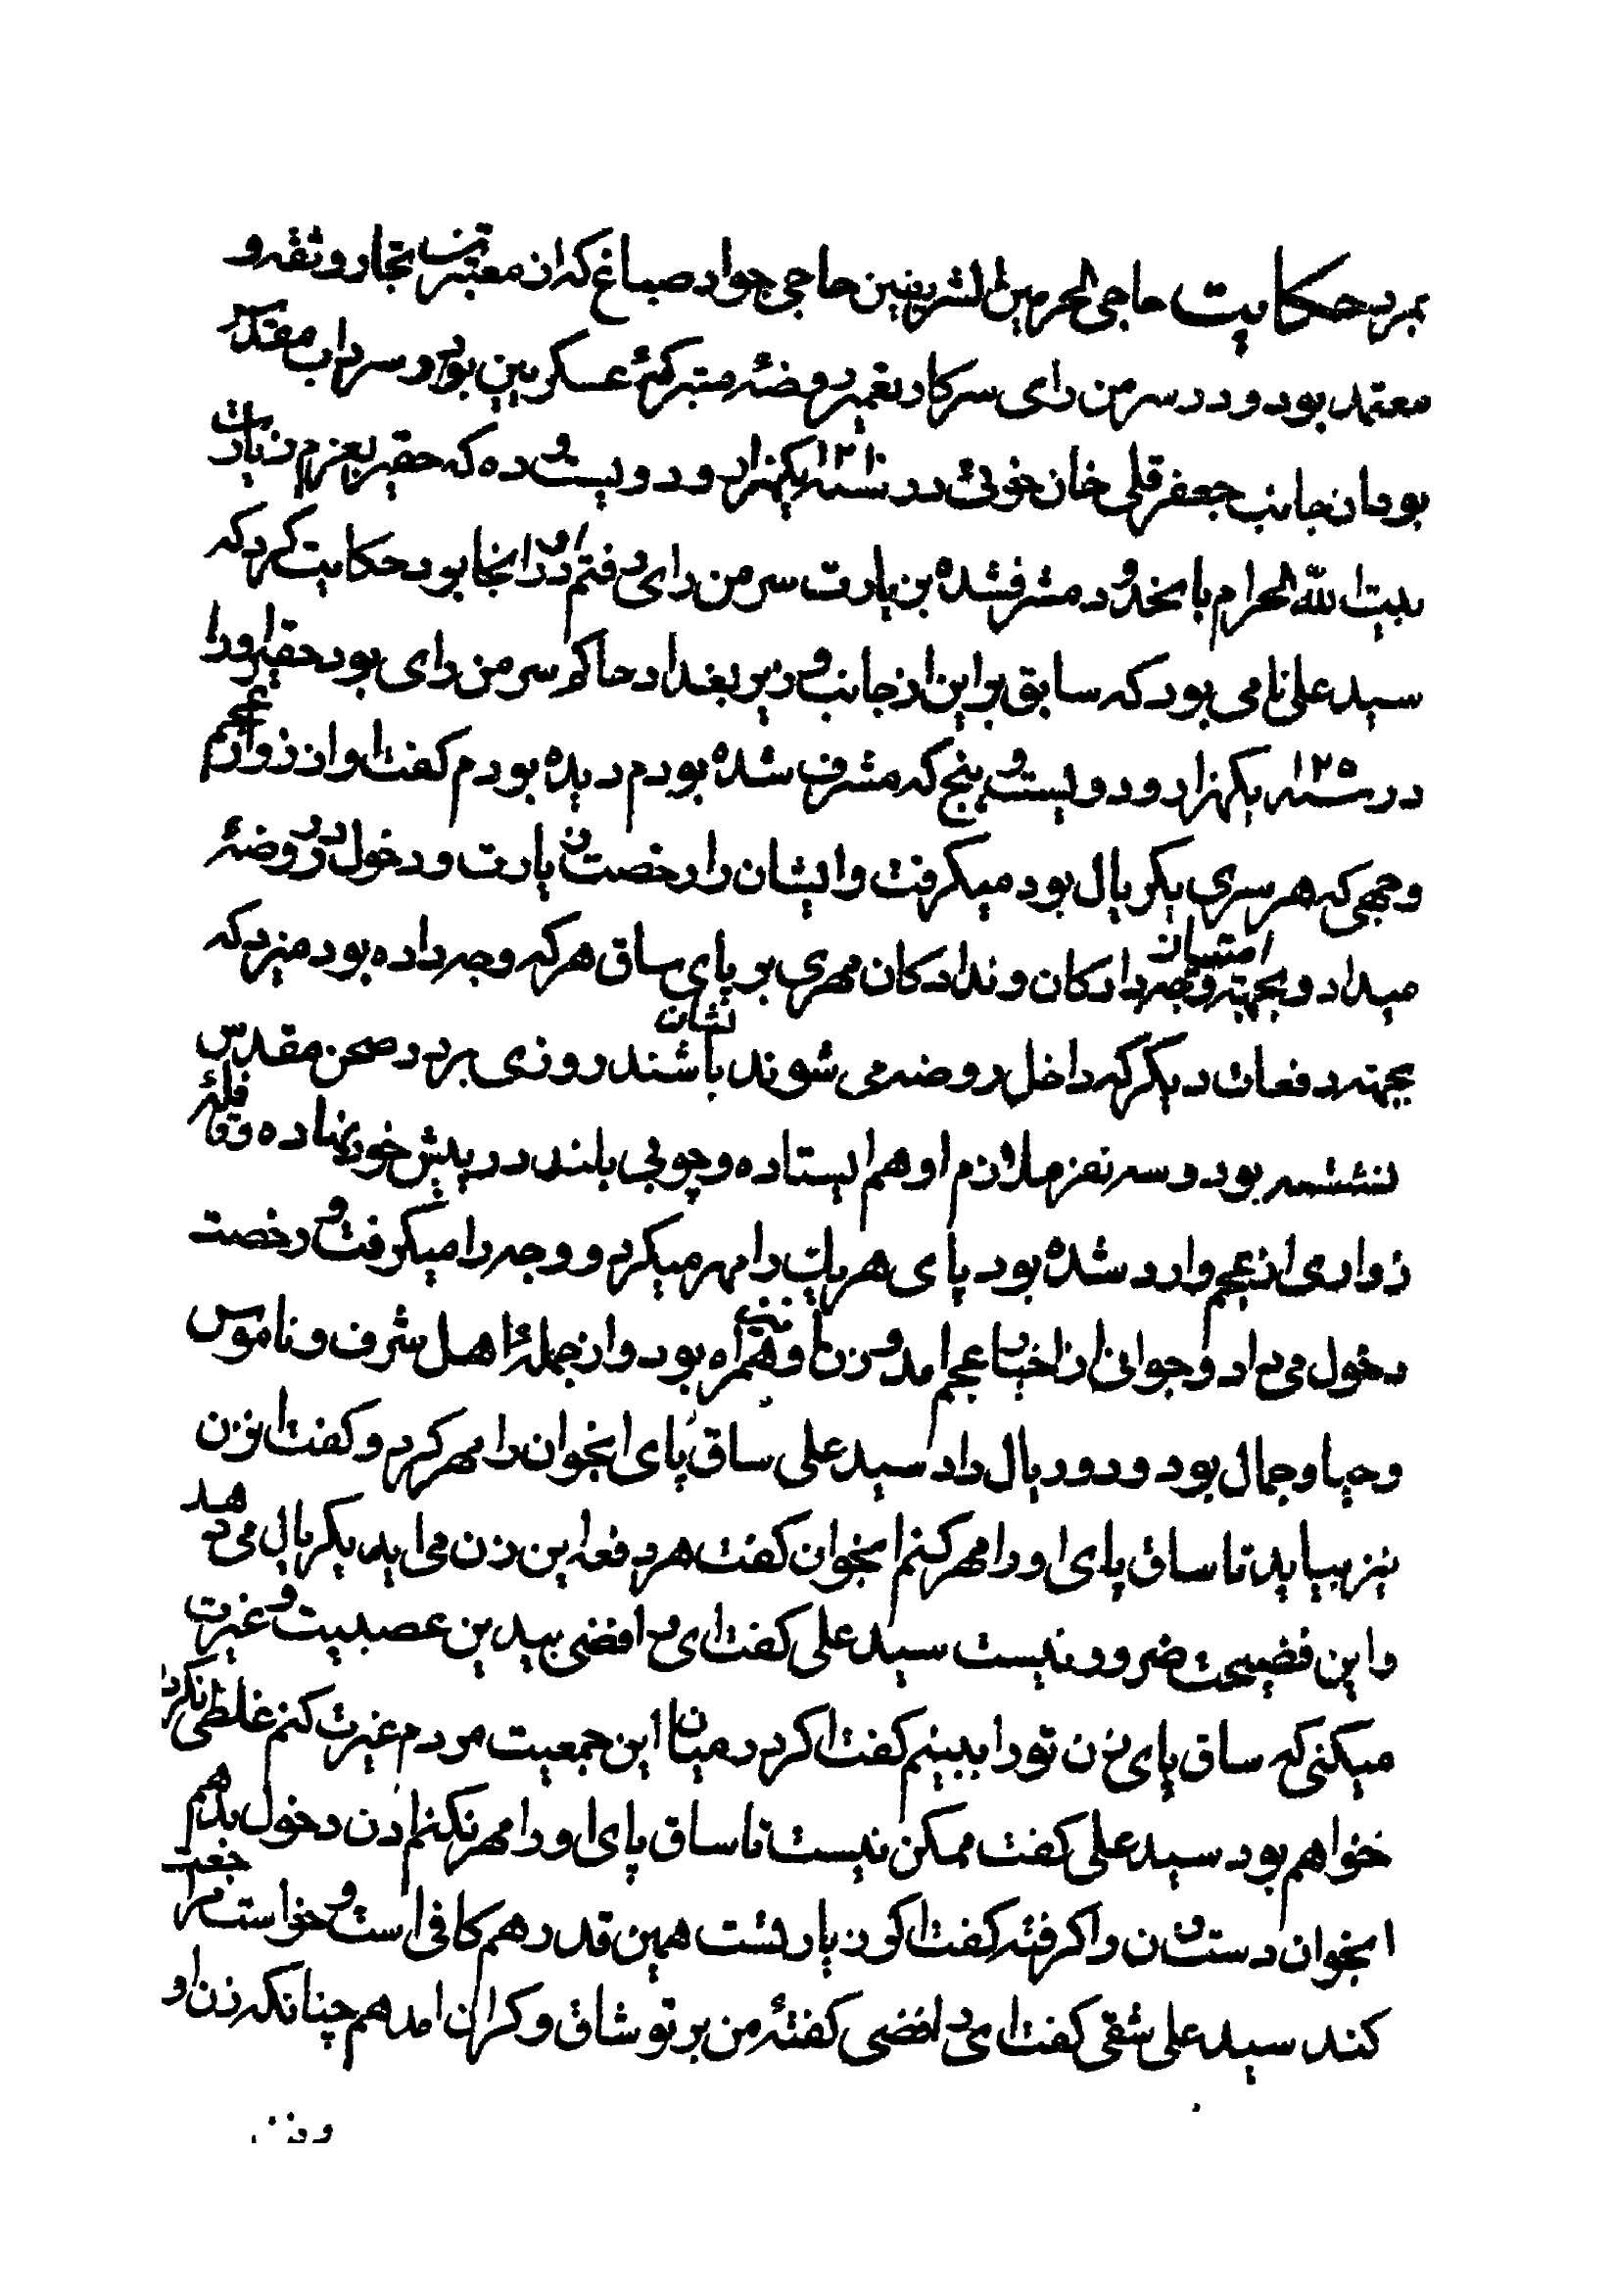 بمرد حکایت حاجی الحرمین الشریفین حاجی جواد صباغ که از معتبرین تجار و ثقه و
معتمد بود و در سر من رای سرکار تعمیر روضهٔ متبرکهٔ عسکریین بود و سرداب مقدس
بود از جانب جعفر قلی خان خوئی در سنه ۱۲۱۰ یکهزار و دویست و ده که حقیر بعزم زیارت
بیت الله الحرام بانحدود مشرف شده بزیارت سر من رای رفتم او در انجا بود حکایت کرد که
سید علی نامی بود که سابق بر این از جانب وزیر بغداد حاکم سر من رای بود حقیر او را
در سنه ۱۲۰۵ یکهزار و دویست و پنج که مشرف شده بودم دیده بودم کفت او از زوار عجم
وجهی که هر سری یکریال بود میکرفت و ایشان را رخصت زیارت و دخول در روضهٔ
میداد و بجهته امتیاز وجه دادکان و ندادکان مهری بر پای ساق هر که وجه داده بود میزد که
بجهته دفعات دیکر که داخل روضه می شوند نشان باشند روزی بر در صحن مقدس
نشسته بود و سه نفر ملازم او هم ایستاده و چوبی بلند در پیش خود نهاده و قافلهٔ
زواری از عجم وارد شده بود پای هر یک را مهر میکرد و وجه را میکرفت و رخصت
دخول می داد و جوانی از اخیار عجم امد و زن او همراه بود و از جملهٔ اهل شرف و ناموس
و حیا و جمال بود و دو ریال داد سید علی ساق پای انجوان را مهر کرد و کفت انزن
نیز بیاید تا ساق پای او را مهر کنم انجوان کفت هر دفعه این زن می اید یکریال می دهد
و این فضیحت ضرور نیست سید علی کفت ای رافضی بیدین عصبیت و غیرت
میکنی که ساق پای زن تو را ببینم کفت اکر در میان این جمعیت مردم غیرت کنم غلطی نکرده
خواهم بود سید علی کفت ممکن نیست تا ساق پای او را مهر نکنم اذن دخول بدهم
انجوان دست زن را کرفته کفت اکر زیارتست همین قدر هم کافی است و خواست مراجعت
کند سید علی شقی کفت ای رافضی کفتهٔ من بر تو شاق و کران امد هم چنانکه زن او